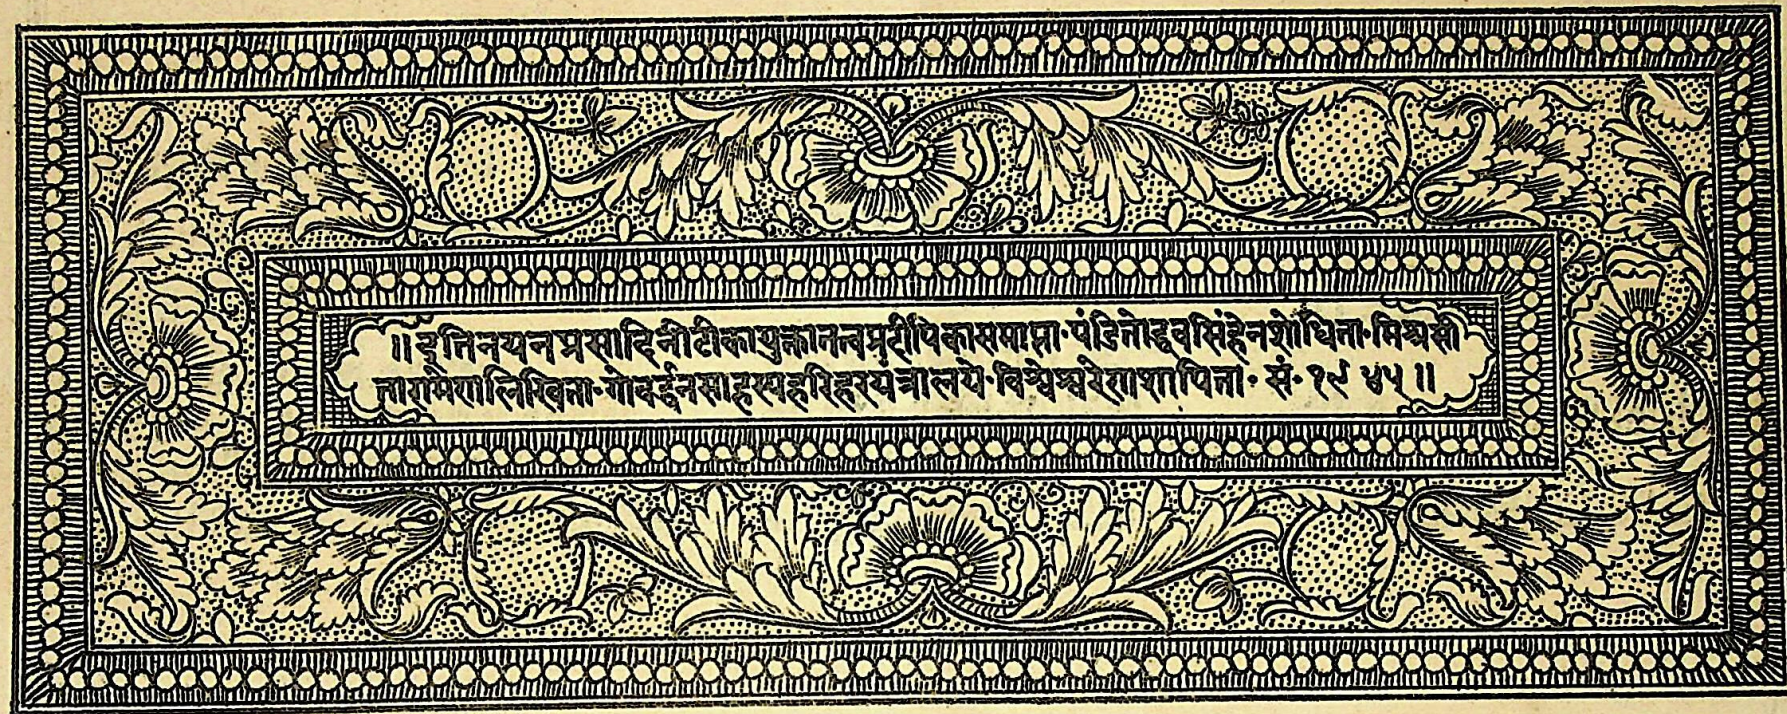 ॥ इति नयनप्रसादिनीटीकायुक्तातत्वप्रदीपिकासमाप्ता॰ पंडितोद्धवसिंहेनशोधिता॰ मिश्रसी
तारामेणालिखिता॰ गोवर्द्धनसाहस्यहरिहरयंत्रालये॰ विश्वेश्वरेणशापिता॰ सं॰ १९४५ ॥